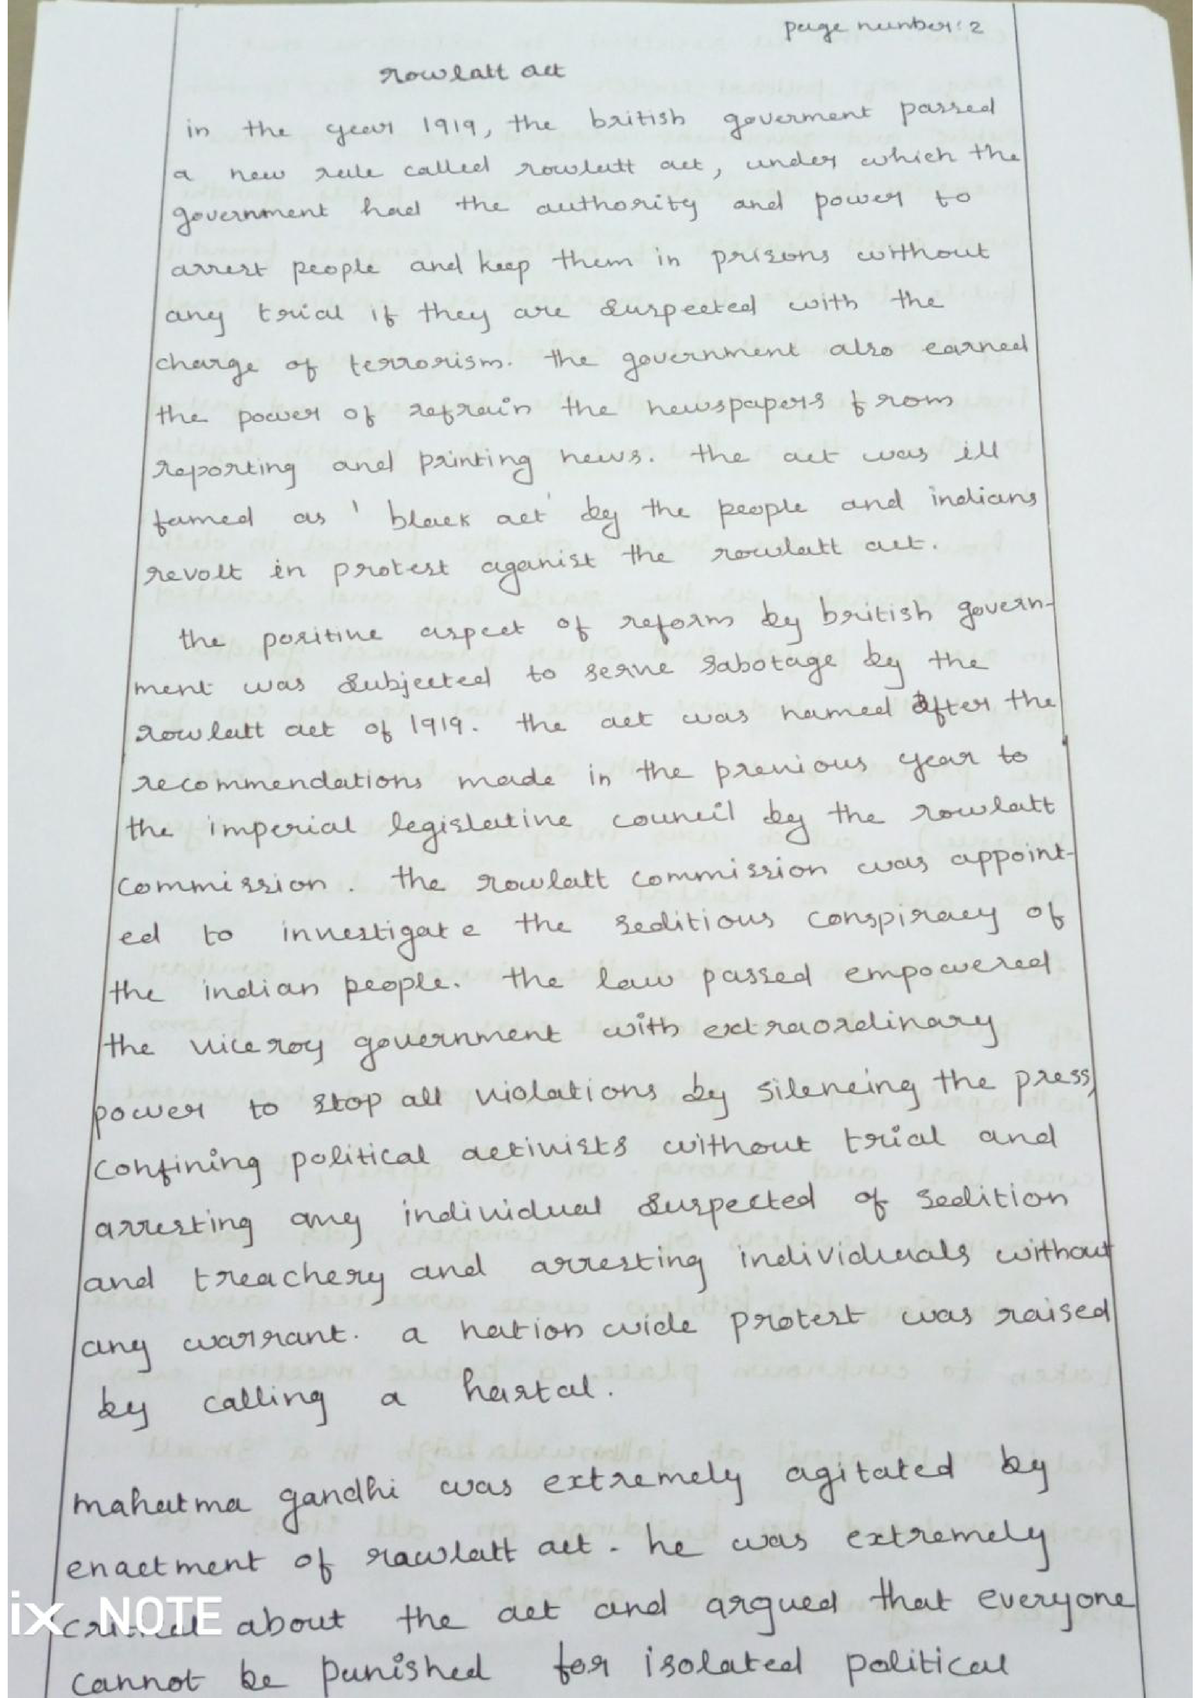 page number: 2
rowlatt act
in the year 1919, the british goverment passed
a new rule called rowlatt act, under which the
government had the authority and power to
arrest people and keep them in prisons without
any trial if they are suspected with the
charge of terrorism. the government also earned
the power of refrain the newspapers from
reporting and printing news. the act was ill
famed as ' black act' by the people and indians
revolt in protest aganist the rowlatt act.
the positive aspect of reform by british govern-
ment was subjected to serve sabotage by the
rowlatt act of 1919. the act was named after the
recommendations made in the previous year to
the imperial legislative council by the rowlatt
commission. the rowlatt commission was appoint-
ed to investigate the seditious conspiracy of
the indian people. the law passed empowered
the viceroy government with extraordinary
power to stop all violations by silencing the press,
confining political activists without trial and
arresting any individual suspected of sedition
and treachery and arresting individuals without
any warrant. a nation wide protest was raised
by calling a hartal.
mahatma gandhi was extremely agitated by
enactment of rawlatt act. he was extremely
critical about the act and argued that everyone
cannot be punished for isolated political
ix NOTE